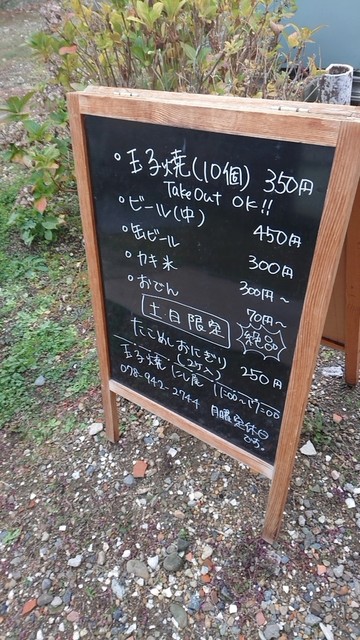 • 玉子焼(10個) 350円
Take Out OK!!
• ビール(中) 450円
• 缶ビール 300円
• カキ氷 300円~
• おでん 70円~
土日限定 絶品
たこめしおにぎり(2ケ入) 250円
玉子焼 にし尾 11:00~17:00
078-942-2744 月曜定休日です。